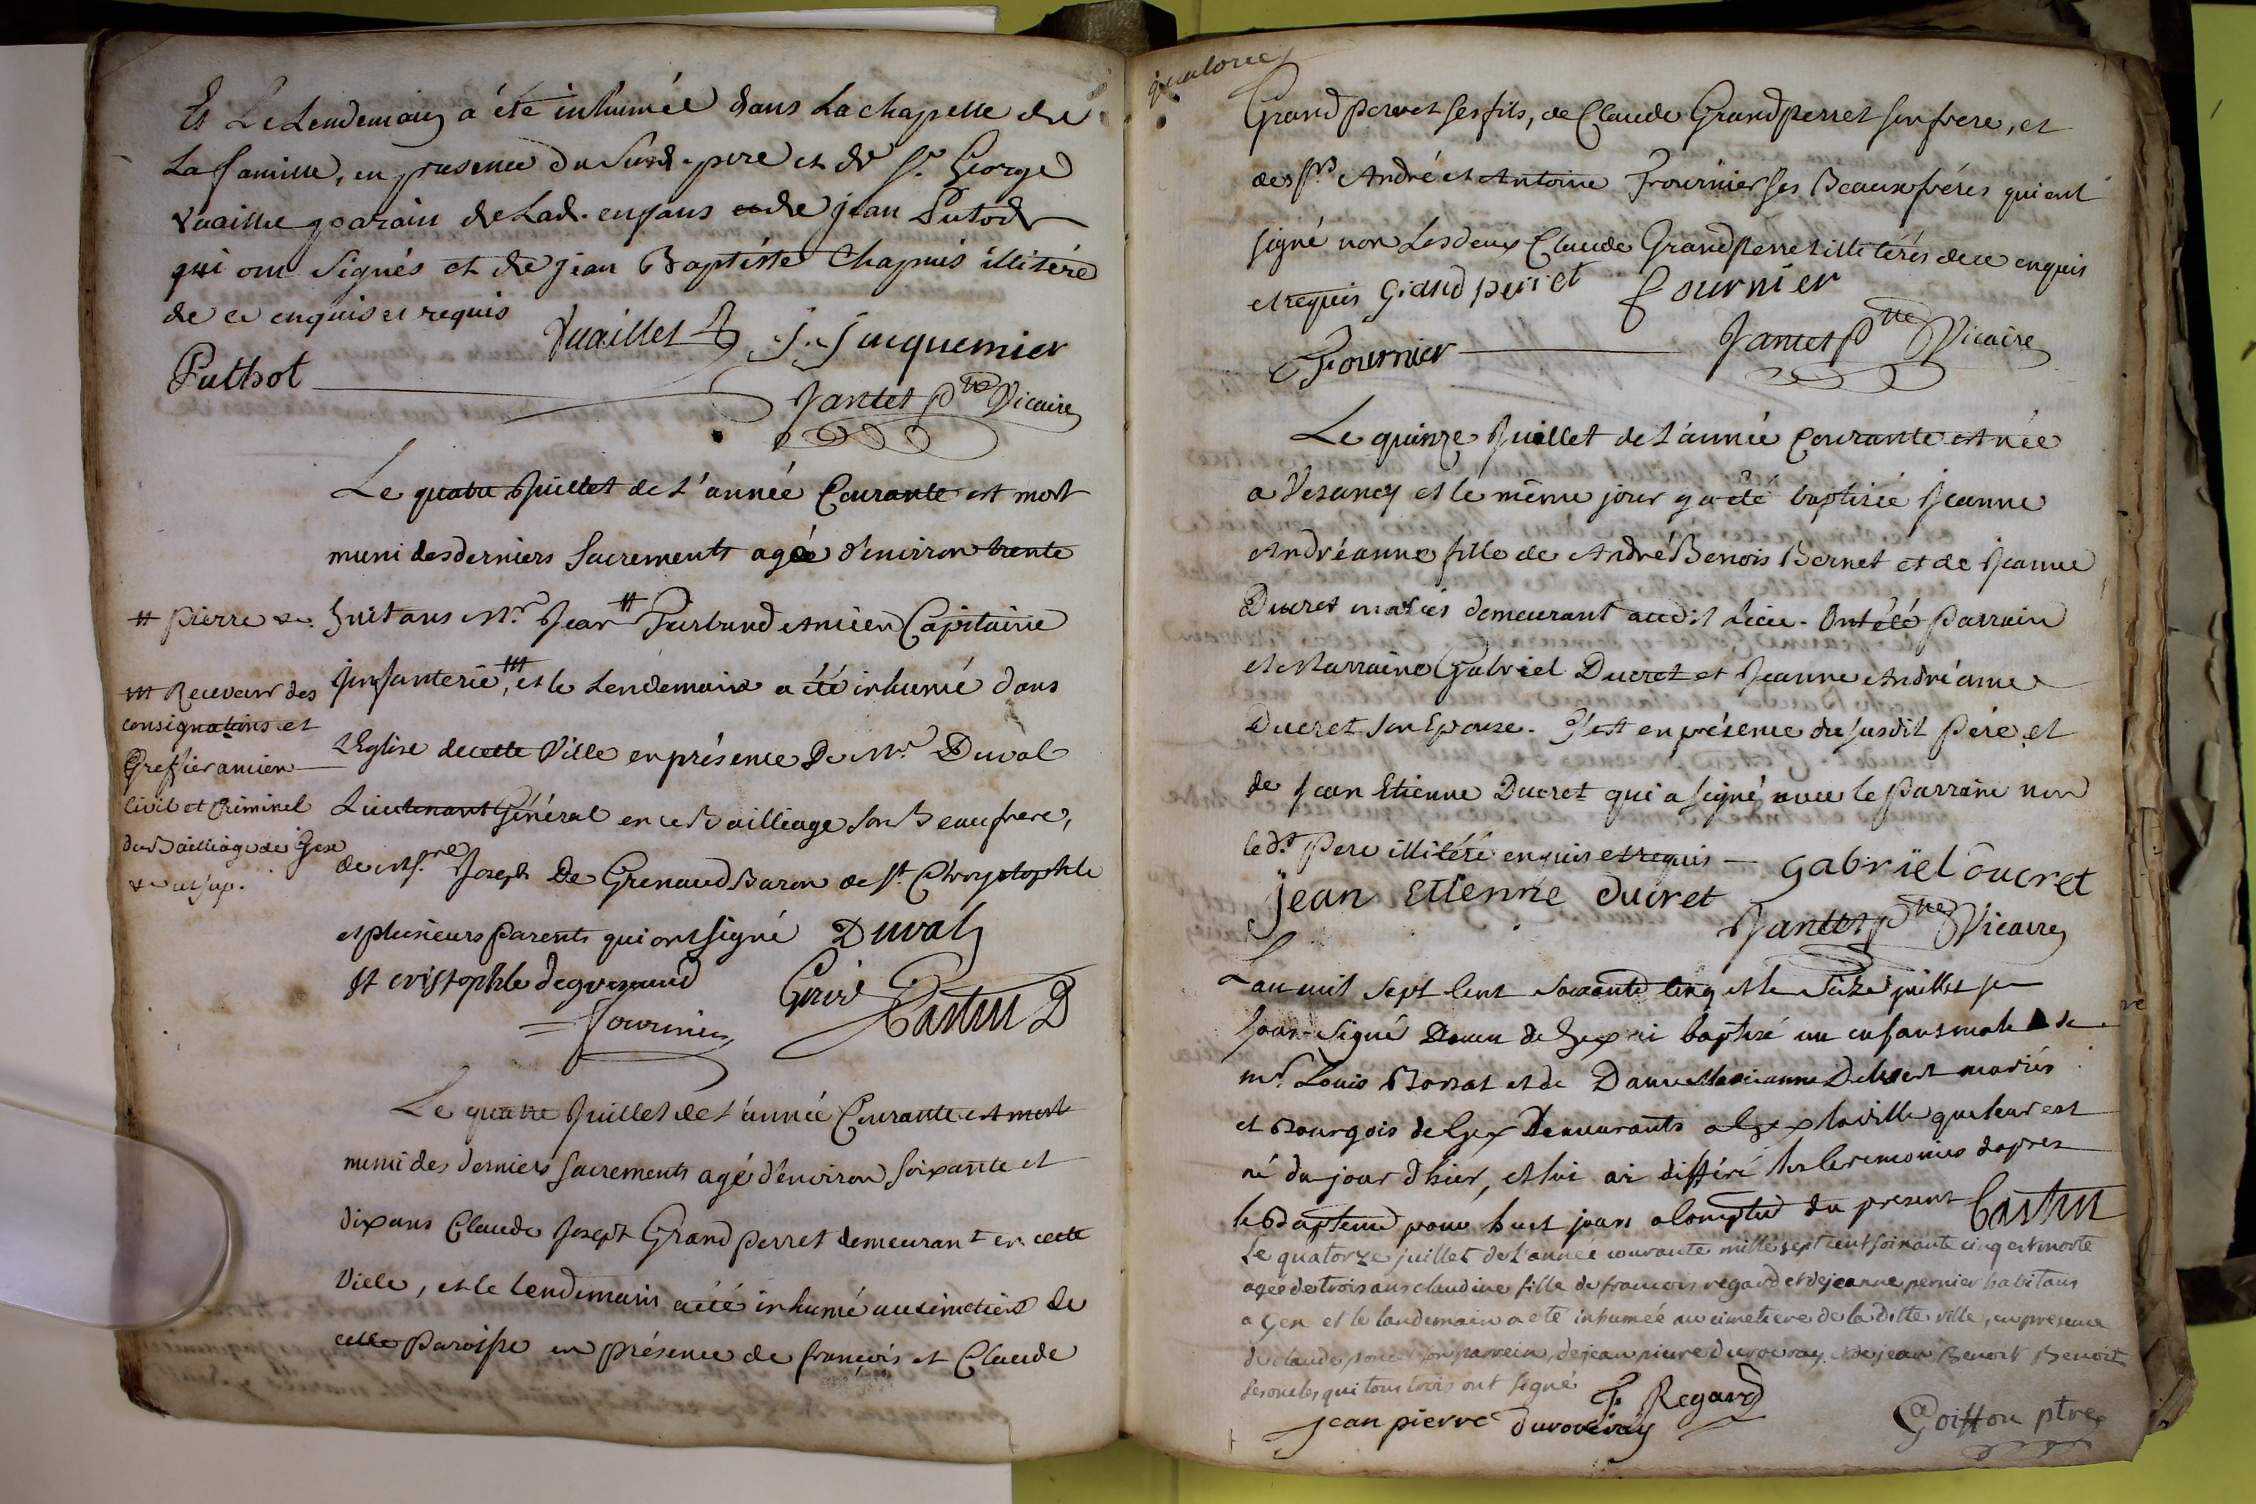 Et Le Lendemain a été inhumée dans La chapelle de
La famille, en presence du Susd. pere et de Sr. George
Vuaillet parain de Lad. enfans et de jean Putod
qui ont Signés et de jean Baptiste Chapuis illiteré
de ce enquis et requis
Vuaillet J. Jacquemier
Puthot
Jantet Ptre Vicaire
Le quatre Juillet de L'année Courante est mort
muni des derniers Sacrements agé d'environ trente
huit ans Mr. Jean # Ancien Capitaine
# pierre
Infanterie, ### et le Lendemain a été inhumé dans
### Receveur des
consignations et
Greffier ancien
Civil et Criminel
du Bailliage de Gex
L'Eglise de cette Ville en présence De Mr. Duval
Lieutenant Général en ce Bailliage Son Beaufrere,
de Mre. Joseph De Grenaud Baron de St. Chrystophle
et plusieurs Parents qui ont signé Duval
St cristophle de grenaud
Castin D
fournier
Le quatre Juillet de L'année Courante est mort
muni des derniers Sacrements agé d'environ soixante et
dix ans Claude Joseph Grand perret demeurant en cette
Ville, et le lendemain a été inhumé au cimetiere de
cette Paroisse en présence de françois et Claude
quatorze
Grand perret ses fils, de Claude Grandperret son frere, et
des Srs André et Antoine Fournier ses Beauxfréres qui ont
signé non Les deux Claude Grandperret illitérés de ce enquis
et requis Grand perret fournier
Fournier Jantet Ptre Vicaire
Le quinze Juillet de L'année Courante est née
a Vesancy et le même jour y a été baptisée Jeanne
Andréanne fille de André Benois Bernet et de Jeanne
Ducret mariés demeurant audit Lieu. Ont été Parrain
et Marraine Gabriel Ducret et Jeanne Andréanne
Ducret son Epouse. C'est en présence du susdit Pére et
de Jean Etienne Ducret qui a signé avec le Parrain non
le dt Pere illitéré enquis et requis — Gabriel ducret
jean etienne ducret
Jantet Ptre Vicaire
L'an mil sept cent soixante cinq et le seize juillet je
sous-signé Doyen de Gex ai baptisé un enfant male de
mr. Louis Borsat et de Dame Marianne mariés
et Bourgois de Gex Demeurants a Gex la ville qui leur est
né du jour d'hier, et lui ai differé les Ceremonies d'apres
le Bapteme pour huit jours a compter du present Castin
Le quatorze juillet de L'année courante mille sept cent soixante cinq est morte
agée de trois ans claudine fille de francois regard et de jeanne pernier habitans
a Gex et le landemain a eté inhumée au cimetiere de la ditte ville, en presence
de claude son parrein, de jean pierre duroveray et de jean Benoit Benoit
ses oncles qui tous trois ont signé
F. Regard
jean pierre duroveray
Goiffon ptre